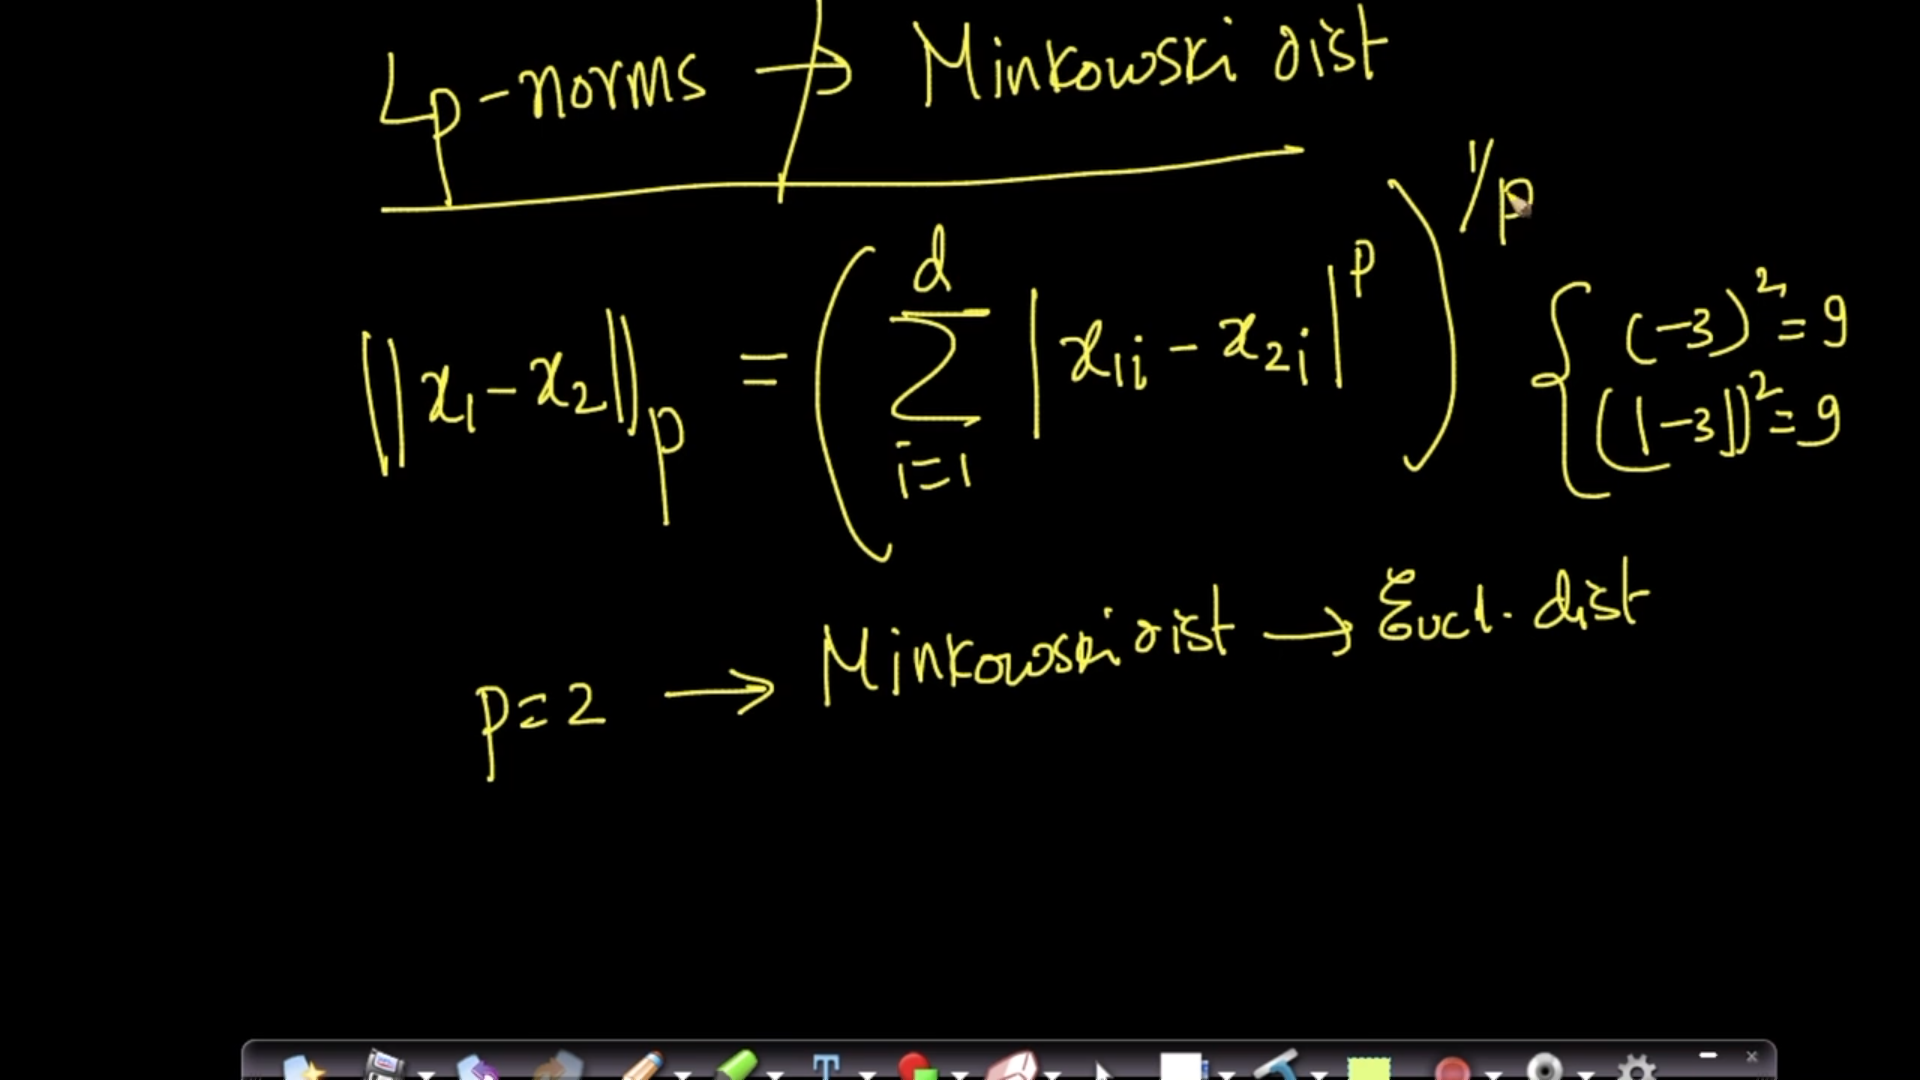 Lp-norms → Minkowski dist
||x₁-x₂||p = ( d Σ i=1 |x₁i - x₂i|^p )^1/p
{ (-3)² = 9
(|-3|)² = 9
p=2 → Minkowski dist → Eucl. dist
T